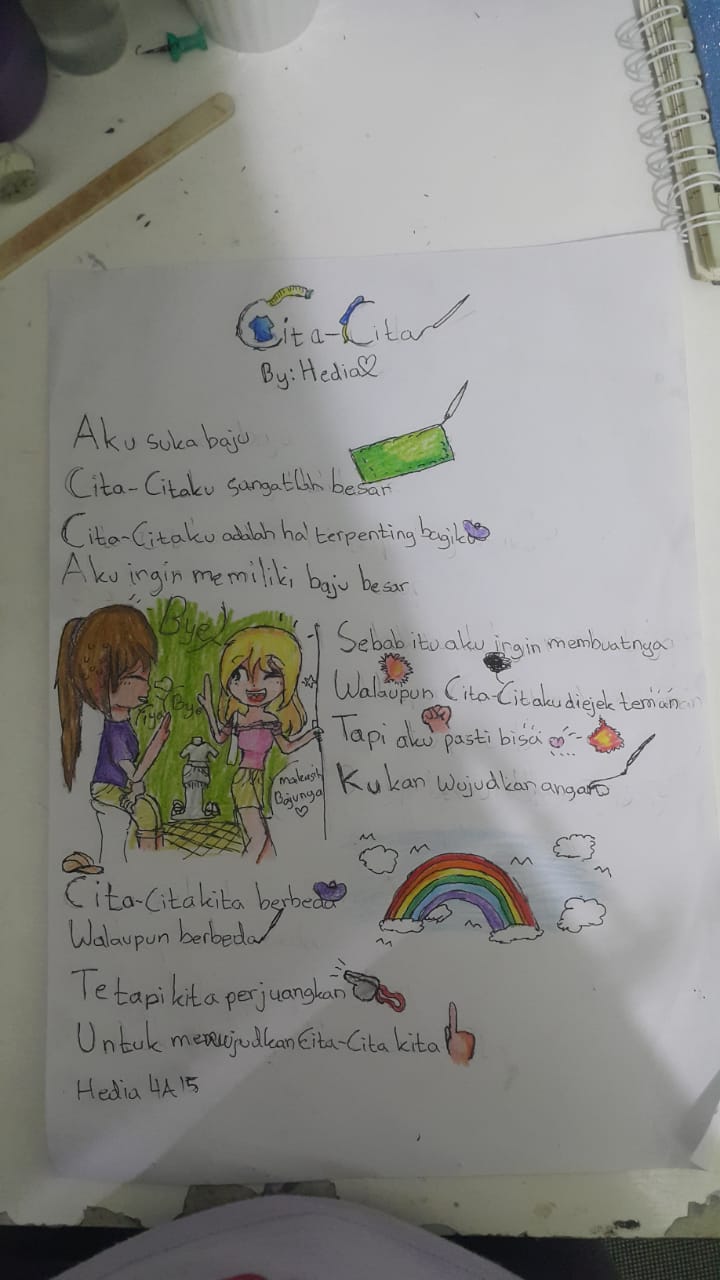 Cita-Cita
By: Hedia
Aku suka baju
Cita-Citaku sangatlah besar
Cita-Citaku adalah hal terpenting bagiku
Aku ingin memiliki baju besar
Bye!
Iya Bye
makasih
Bajunya
Sebab itu aku ingin membuatnya
Walaupun Cita-Citaku diejek teman
Tapi aku pasti bisa
Kukan wujudkan angan
Cita-Cita kita berbeda
Walaupun berbeda
Tetapi kita perjuangkan
Untuk mewujudkan Cita-Cita kita
Hedia 4A 15